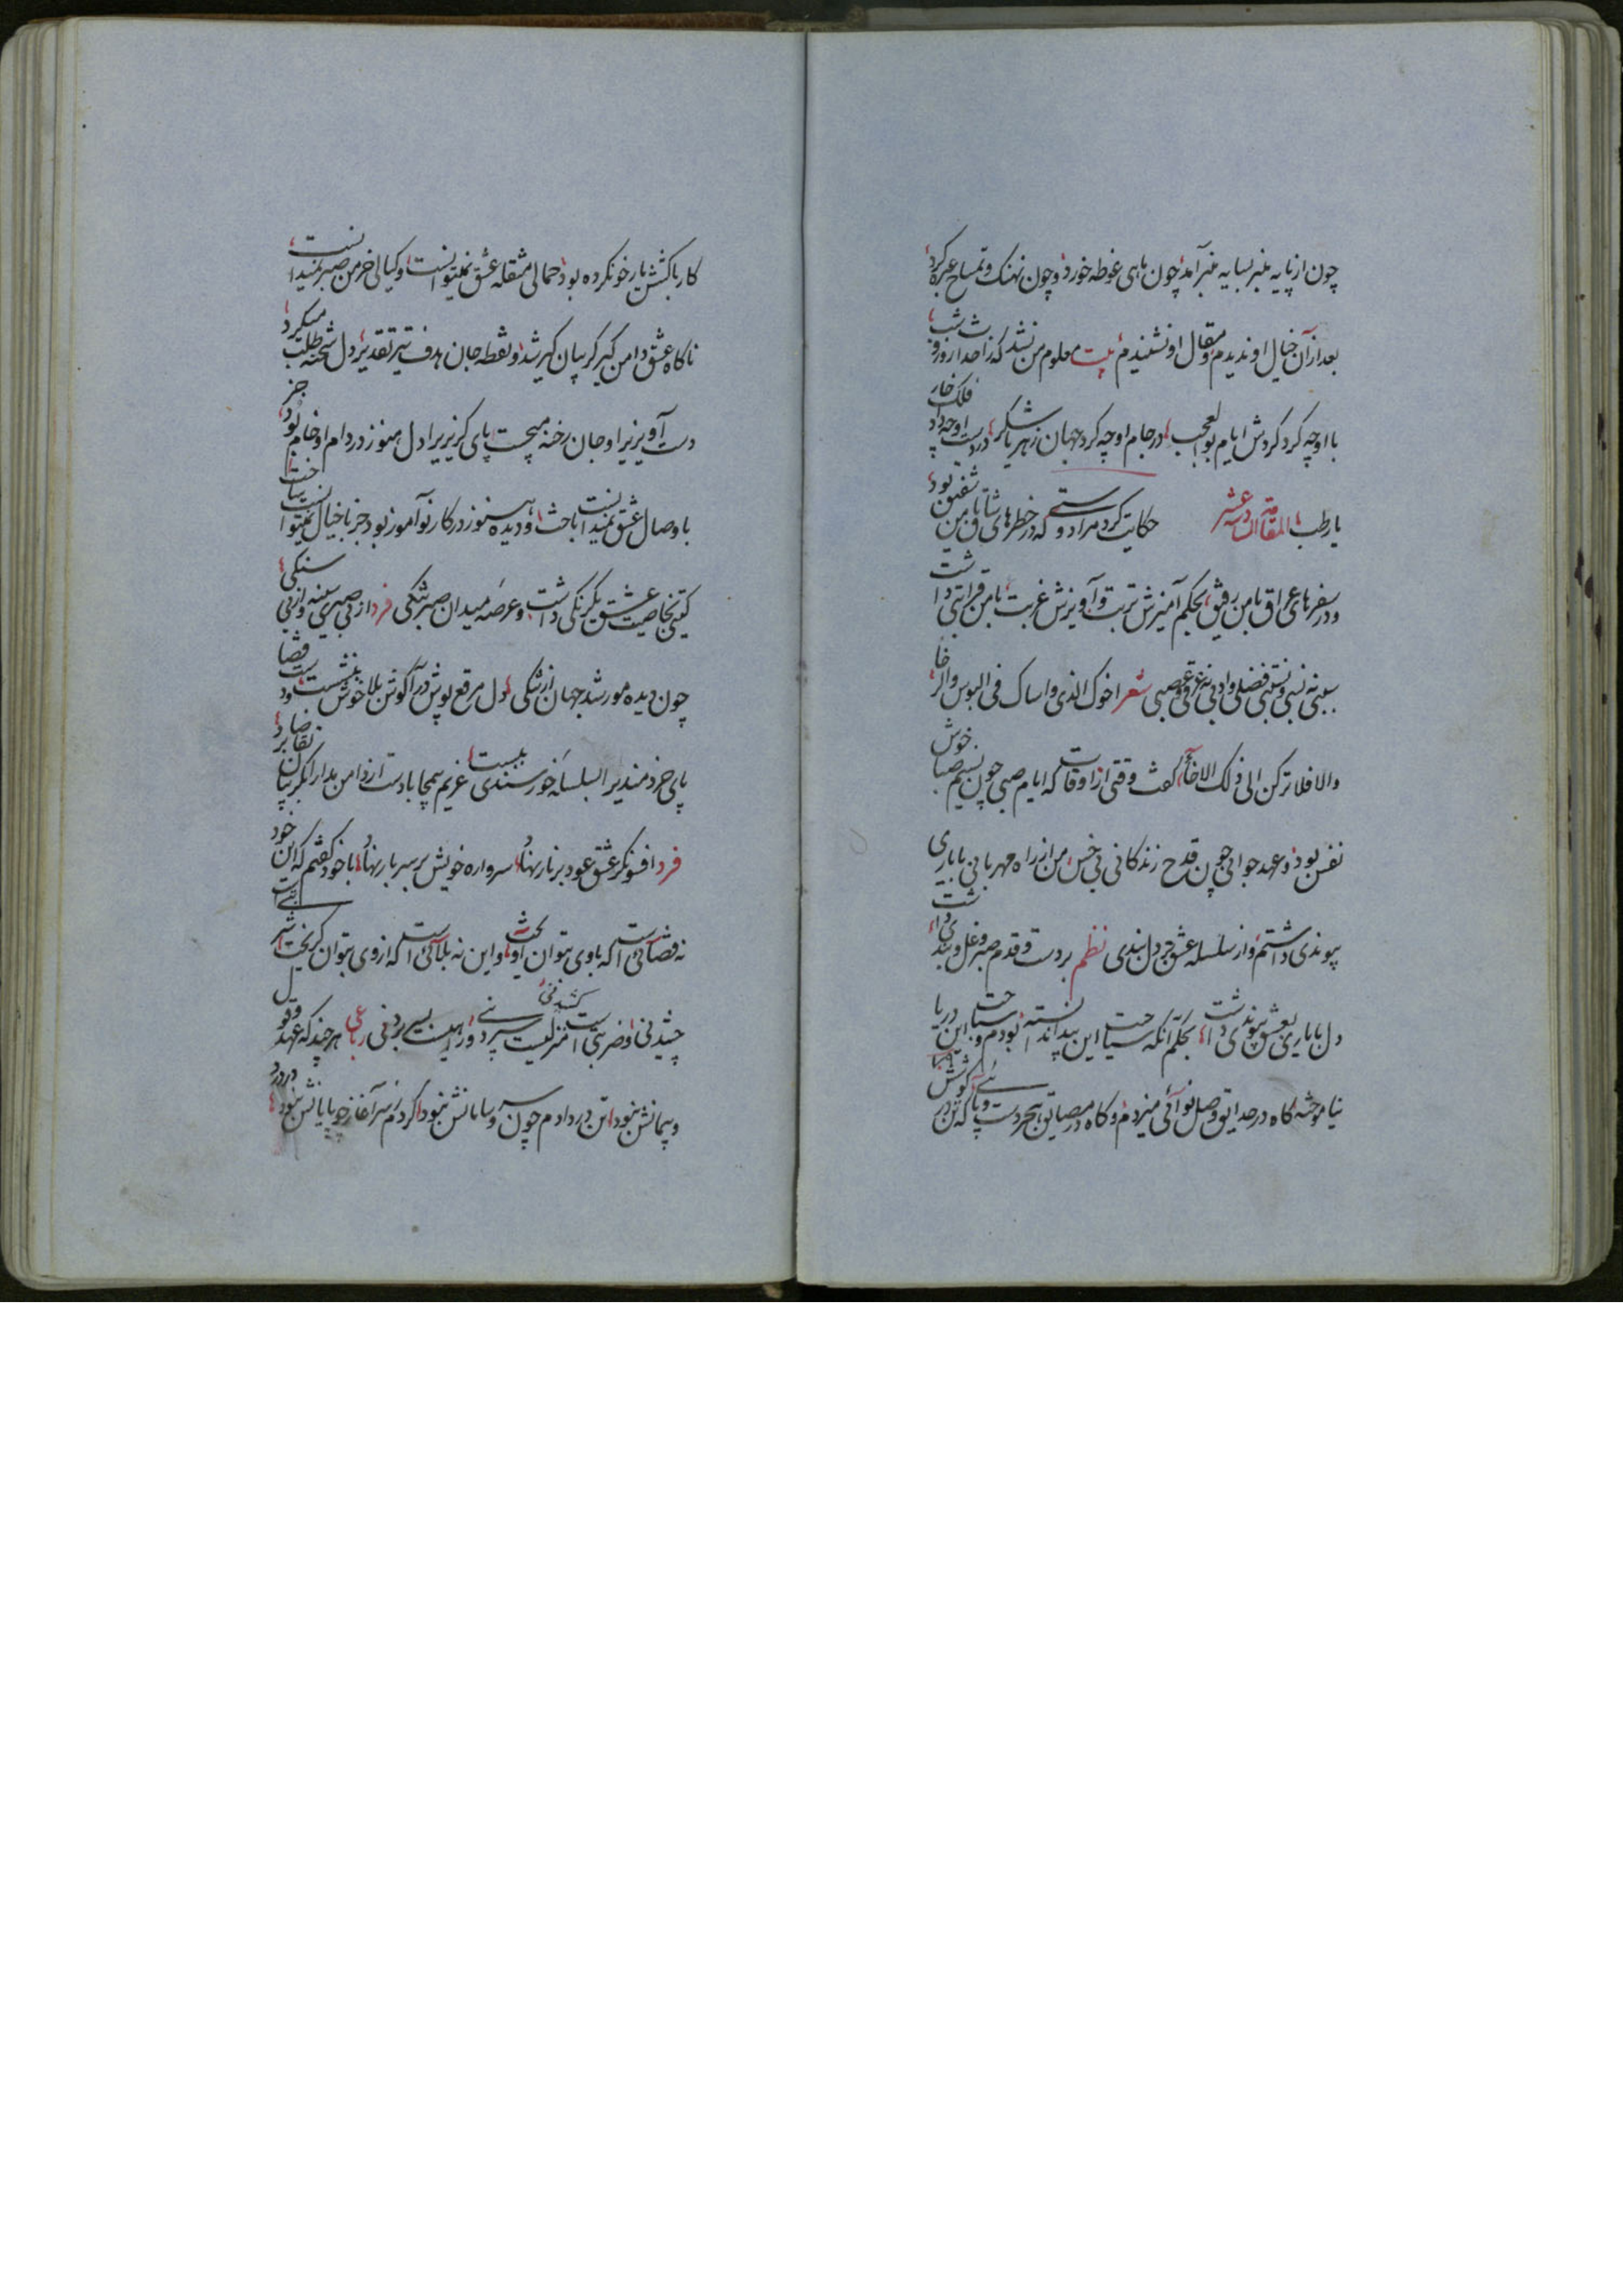 چون از پایه منبر بسایه منبر آمد چون ماهی غوطه خورد و چون نهنک و تمساح عبره کرد
بعد از آن خیال او ندیدم و مقال او نشنیدم بیت معلوم من نشد که زاحداث روز و شب
با او چه کرد کردش ایام بوالعجب در جام او چه کرد جهان زهر یا شکر در دست او چه داد فلک خار
یا رطب المقامة الثالثة عشر حکایت کرد مرا دوستی که در خطرهای شاق با من شفیق بود
و در سفرهای عراق با من رفیق بحکم آمیزش تربت و آویزش غربت با من قرابتی داشت
سببی نه نسبی و نسبتی فضلی و ادبی نه عرقی و عصبی شعر اخوک الذی واساک فی البوس والرخا
والا فلا ترکن الی ذلک الاخا گفت وقتی از اوقات که ایام صبی چون نسیم صبا خوش
نفس بود و عهد جوانی چون قدح زندکانی بی خس من از راه مهربانی با یاری
پیوندی داشتم و از سلسله عشق بر دل بندی نظم بر دست و قدم صبر و غل و بندی داشت
دل با یاری بعشق پیوندی داشت بحکم آنکه سیاحت این بیدا ندانسته بودم و سباحت این دریا
نیاموخته گاه در حدایق وصل نوائی میزدم و کاه در مضایق هجر دست و پائی که کوش در
کار باکشش یار خو نکرده بود حمالی مثقله عشق نمیتوانست و کیالی خرمن صبر نمیدانست
ناکاه عشق دامن گیر گریبان گیر شد و نقطه جان هدف تیر تقدیر دل شحنه طلب میکرد
دست آویز را و جان رخنه میجست پای کریز را دل هنوز در دام او خام بود جز
با وصال عشق نمیدانست باخت و دیده هنوز در کار نوآموز بود جز با خیال نمیتوانست ساخت
کیتی خاصیت عشق یکرنکی داشت و عرصه میدان صبر تنکی فرد از بی صبری سینه و از بی سنکی
چون دیده مور شد جهان از تنکی دل مرقع پوش در آگوش بلا خوش بنشست و قضا
پای خرد مندیرا بسلسله خورسندی ببست غریم همچا با دست از دامن بدار انکریبان تقاضا برد
فرد افسونکر عشق عود بر نار نهاد سرواره خویش بر سر بار نهاد با خود گفتم که این خود
نه قضائی است که با وی بتوان آویخت و این نه بلائی است که از وی بتوان کریخت شربتی است
چشیدنی و ضربتی است کشیدنی منزلیست سپردنی و راهیست بسر بردنی رباعی هر چند که عهد وقول
و پیمانش نبود تن در دادم چون سر و سامانش نبود کردم سر آغاز چو پایانش نبود درد